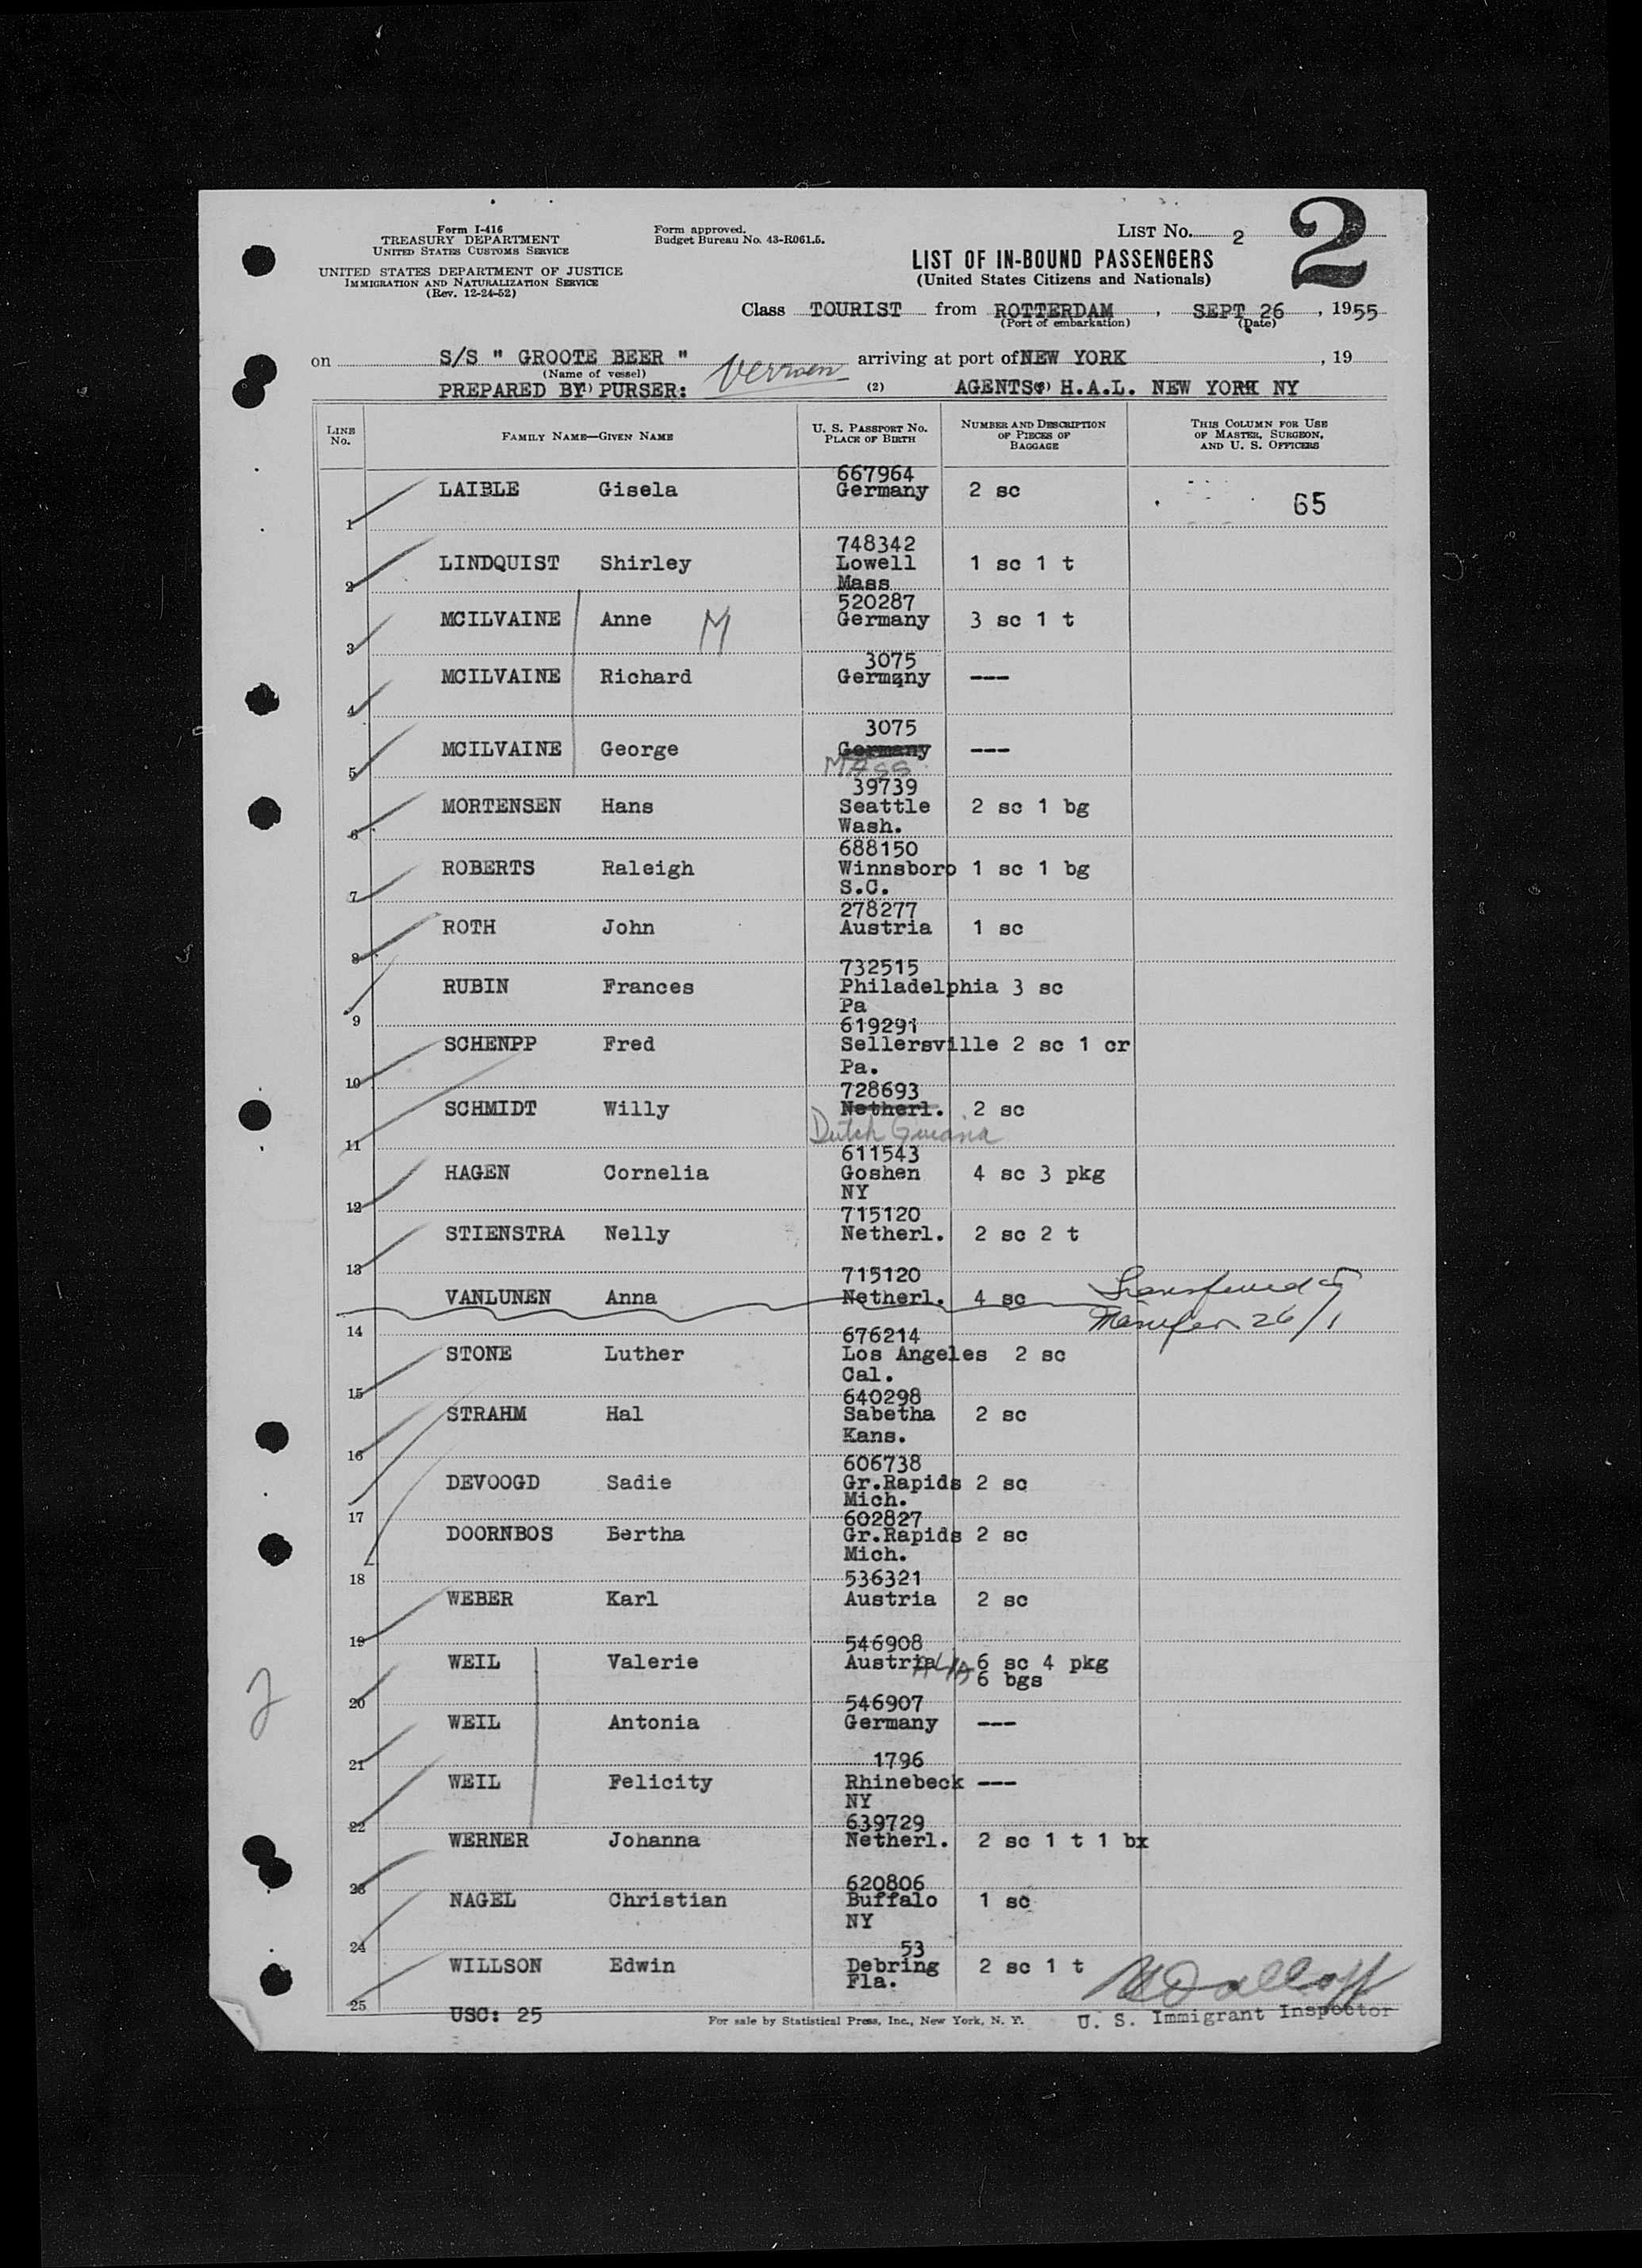 Form I-416
TREASURY DEPARTMENT
UNITED STATES CUSTOMS SERVICE
UNITED STATES DEPARTMENT OF JUSTICE
IMMIGRATION AND NATURALIZATION SERVICE
(Rev. 12-24-52)
Form approved.
Budget Bureau No. 43-R061.5.
LIST No. 2
2
LIST OF IN-BOUND PASSENGERS
(United States Citizens and Nationals)
Class TOURIST from ROTTERDAM, SEPT 26, 1955
(Port of embarkation) (Date)
on S/S " GROOTE BEER " arriving at port of NEW YORK, 19
(Name of vessel)
PREPARED BY PURSER: (2) AGENTS H.A.L. NEW YORK NY
LINE No. FAMILY NAME—GIVEN NAME U. S. PASSPORT NO. PLACE OF BIRTH NUMBER AND DESCRIPTION OF PIECES OF BAGGAGE THIS COLUMN FOR USE OF MASTER, SURGEON, AND U. S. OFFICERS
667964
LAIBLE Gisela Germany 2 sc 65
1
748342
LINDQUIST Shirley Lowell 1 sc 1 t
2 Mass
520287
MCILVAINE Anne M Germany 3 sc 1 t
3
3075
MCILVAINE Richard Germany ---
4
3075
MCILVAINE George Germany ---
5 MASS
39739
MORTENSEN Hans Seattle 2 sc 1 bg
6 Wash.
688150
ROBERTS Raleigh Winnsboro 1 sc 1 bg
7 S.C.
278277
ROTH John Austria 1 sc
8
732515
RUBIN Frances Philadelphia 3 sc
9 Pa
619291
SCHENPP Fred Sellersville 2 sc 1 cr
10 Pa.
728693
SCHMIDT Willy Netherl. 2 sc
11 Dutch Guiana
611543
HAGEN Cornelia Goshen 4 sc 3 pkg
12 NY
715120
STIENSTRA Nelly Netherl. 2 sc 2 t
13
715120
VANLUNEN Anna Netherl. 4 sc Transferred to
14 26/1
676214
STONE Luther Los Angeles 2 sc
15 Cal.
640298
STRAHM Hal Sabetha 2 sc
16 Kans.
606738
DEVOOGD Sadie Gr.Rapids 2 sc
17 Mich.
602827
DOORNBOS Bertha Gr.Rapids 2 sc
18 Mich.
536321
WEBER Karl Austria 2 sc
19
546908
WEIL Valerie Austria 6 sc 4 pkg
20 6 bgs
546907
WEIL Antonia Germany ---
21
1796
WEIL Felicity Rhinebeck ---
22 NY
639729
WERNER Johanna Netherl. 2 sc 1 t 1 bx
23
620806
NAGEL Christian Buffalo 1 sc
24 NY
53
WILLSON Edwin Debring 2 sc 1 t
25 Fla.
USC: 25
For sale by Statistical Press, Inc., New York, N. Y.
U. S. Immigrant Inspector